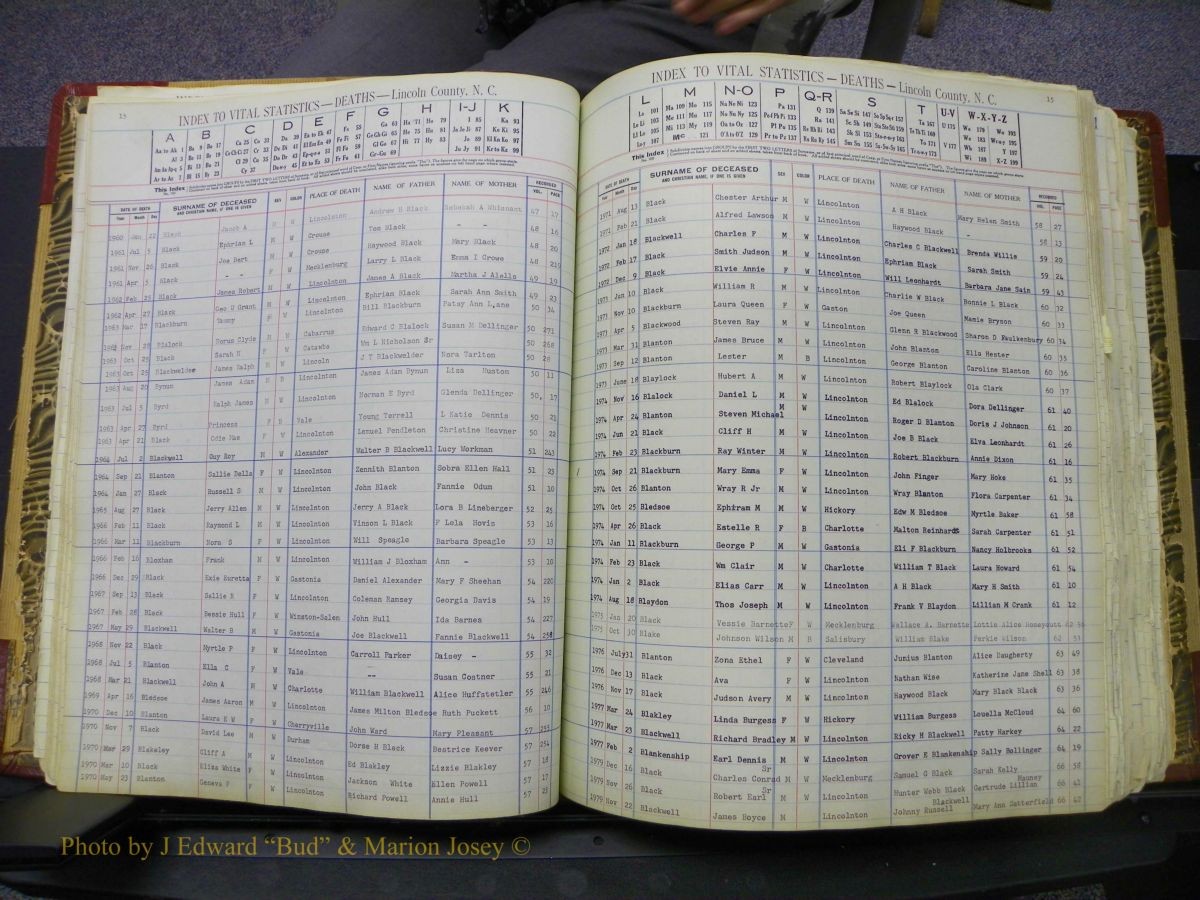 INDEX TO VITAL STATISTICS—DEATHS—Lincoln County, N. C.
15
A B C D E F G H I-J K
DATE OF DEATH SURNAME OF DECEASED SEX COLOR PLACE OF DEATH NAME OF FATHER NAME OF MOTHER RECORDED
Year Month Day AND CHRISTIAN NAME, IF ONE IS GIVEN VOL. PAGE
1960 Jan 22 Black Jacob A M W Lincolnton Andrew H Black Rebekah A Whisnant 47 17
1961 Jul 5 Black Ephrian L M W Crouse Tom Black - - 48 16
1961 Nov 26 Black Joe Bert M W Crouse Haywood Black Mary Black 48 20
1961 Apr 5 Black - - Mecklenburg Larry L Black Emma I Crowe 48 219
1962 Feb 25 Black James Robert M W Lincolnton James A Black Martha J Alells 49 19
1962 Apr 27 Black Geo U Grant M W Lincolnton Ephrian Black Sarah Ann Smith 49 23
1963 Mar 17 Blackburn Tammy F W Lincolnton Bill Blackburn Patsy Ann Lane 50 34
Nov 28 Blalock Clyde Cabarrus Edward C Blalock Susan M Dellinger 50 271
1963 Oct 25 Black Sarah E Catawba Wm L Nicholson Sr 50 268
1963 Oct 25 Blackwelder James Ralph M W Lincoln J T Blackwelder Nora Tarlton 50 28
1963 Aug 20 Bynum James Adan M B Lincolnton James Adam Bynum Liza Huston 50 11
1963 Jul 5 Byrd Ralph James M W Lincolnton Norman E Byrd Glenda Dellinger 50, 17
1963 Apr 27 Byrd Princess F B Vale Young Terrell L Katie Dennis 50 21
1963 Apr 21 Black Odie Mae F W Lincolnton Lemuel Pendleton Christine Heavner 50 22
1964 Jul 2 Blackwell Guy Roy M W Alexander Walter B Blackwell Lucy Workman 51 243
1964 Sep 21 Blanton Sallie Della F W Lincolnton Zennith Blanton Sobra Ellen Hall 51 23
1964 Jan 27 Black Russell S M W Lincolnton John Black Fannie Odum 51 10
1965 Aug 27 Black Jerry Allen M W Lincolnton Jerry A Black Lora B Lineberger 52 25
1966 Feb 11 Black Raymond L M W Lincolnton Vinson L Black F Lela Hovis 53 16
1966 Mar 11 Blackburn Nora S F W Lincolnton Will Speagle Barbara Speagle 53 13
1966 Feb 16 Bloxham Frank M W Lincolnton William J Bloxham Ann - 53 10
1966 Dec 29 Black Exie Suretta F W Gastonia Daniel Alexander Mary F Sheehan 54 220
1967 Sep 13 Black Sallie R F W Lincolnton Coleman Ramsey Georgia Davis 54 19
1967 Feb 28 Black Bessie Hull F W Winston-Salem John Hull Ida Barnes 54 227
1967 May 29 Blackwell Walter B M W Gastonia Joe Blackwell Fannie Blackwell 54 258
1968 Nov 22 Black Myrtle P F W Lincolnton Carroll Parker Daisey - 55 32
1968 Jul 5 Blanton Ella C F W Vale -- Susan Costner 55 21
1968 Mar 21 Blackwell John A M W Charlotte William Blackwell Alice Huffstetler 55 246
1969 Apr 16 Bledsoe James Aaron M W Lincolnton James Milton Bledsoe Ruth Puckett 56 10
1970 Dec 10 Blanton Laura E W F W Cherryville John Ward Mary Pleasant 57 255
1970 Nov 7 Black David Lee M W Durham Dorse H Black Beatrice Keever 57 254
1970 Mar 29 Blakeley Cliff A M W Lincolnton Ed Blakley Lizzie Blakley 57 18
1970 Mar 10 Black Eliza White F W Lincolnton Jackson White Ellen Powell 57 17
1970 May 23 Blanton Geneva P F W Lincolnton Richard Powell Annie Hull 57 23
INDEX TO VITAL STATISTICS—DEATHS—Lincoln County, N. C.
15
L M N-O P Q-R S T U-V W-X-Y-Z
DATE OF DEATH SURNAME OF DECEASED SEX COLOR PLACE OF DEATH NAME OF FATHER NAME OF MOTHER RECORDED
Year Month Day AND CHRISTIAN NAME, IF ONE IS GIVEN VOL. PAGE
1971 Aug 13 Black Chester Arthur M W Lincolnton A H Black Mary Helen Smith 58 27
1971 Feb 21 Black Alfred Lawson M W Lincolnton Haywood Black - 58 13
1972 Jan 18 Blackwell Charles F M W Lincolnton Charles C Blackwell Brenda Willis 59 20
1972 Feb 17 Black Smith Judson M W Lincolnton Ephriam Black Sarah Smith 59 24
1972 Dec 9 Black Elvie Annie F W Lincolnton Will Leonhardt Barbara Jane Sain 59 43
1973 Jun 10 Black William R M W Lincolnton Charlie W Black Bonnie L Black 60 32
1973 Nov 10 Blackburn Laura Queen F W Gaston Joe Queen Mamie Bryson 60 33
1973 Apr 5 Blackwood Steven Ray M W Lincolnton Glenn R Blackwood Sharon D Faulkenbury 60 34
1973 Mar 31 Blanton James Bruce M W Lincolnton John Blanton Ella Hester 60 35
1973 Sep 12 Blanton Lester M B Lincolnton George Blanton Caroline Blanton 60 36
1973 June 18 Blaylock Hubert A M W Lincolnton Robert Blaylock Ola Clark 60 37
1974 Nov 16 Blalock Daniel L M W Lincolnton Ed Blalock Dora Dellinger 61 40
1974 Apr 24 Blanton Steven Michael M W Lincolnton Roger D Blanton Doris J Johnson 61 20
1974 Jun 21 Black Cliff H M W Lincolnton Joe B Black Elva Leonhardt 61 26
1974 Feb 23 Blackburn Ray Winter M W Lincolnton Robert Blackburn Annie Dixon 61 16
1974 Sep 21 Blackburn Mary Emma F W Lincolnton John Finger Mary Hoke 61 35
1974 Oct 26 Blanton Wray R Jr M W Hickory Wray Blanton Flora Carpenter 61 34
1974 Oct 25 Bledsoe Ephriam M M W Hickory Edw M Bledsoe Myrtle Baker 61 58
1974 Apr 26 Black Estelle R F B Charlotte Malton Reinhards Sarah Carpenter 61 51
1974 Jan 11 Blackburn George P M W Gastonia Eli F Blackburn Nancy Holbrooks 61 52
1974 Feb 23 Black Wm Clair M W Charlotte William T Black Laura Howard 61 54
1974 Jan 2 Black Elias Carr M W Lincolnton A H Black Mary H Smith 61 10
1974 Aug 18 Blaydon Thos Joseph M W Lincolnton Frank V Blaydon Lillian M Crank 61 12
1975 Jan 20 Black Vessie Barnette F W Mecklenburg Wallace A. Barnette Lottie Alice Honeycutt 62
1975 Oct 30 Blake Johnson Wilson M B Salisbury William Blake Perkie Wilson 62 53
1976 July 31 Blanton Zona Ethel F W Cleveland Junius Blanton Alice Daugherty 63 49
1976 Dec 13 Black Ava F W Lincolnton Nathan Wise Katherine Jane Shell 63 38
1976 Nov 17 Black Judson Avery M W Lincolnton Haywood Black Mary Black Black 63 36
1977 Mar 24 Blakley Linda Burgess F W Hickory William Burgess Louella McCloud 64 60
1977 Mar 23 Blackwell Richard Bradley M W Lincolnton Ricky H Blackwell Patty Harkey 64 22
1977 Feb 2 Blankenship Earl Dennis M W Lincolnton Grover E Blankenship Sally Bollinger 64 19
1979 Dec 16 Black Charles Conrad Sr M W Mecklenburg Samuel G Black Sarah Kelly 66 58
1979 Nov 26 Black Robert Earl Sr M W Lincolnton Hunter Webb Black Gertrude Lillian Mauney 66 41
1979 Nov 22 Blackwell James Boyce M W Lincolnton Johnny Russell Blackwell Mary Ann Satterfield 66 42
Photo by J Edward “Bud” & Marion Josey ©